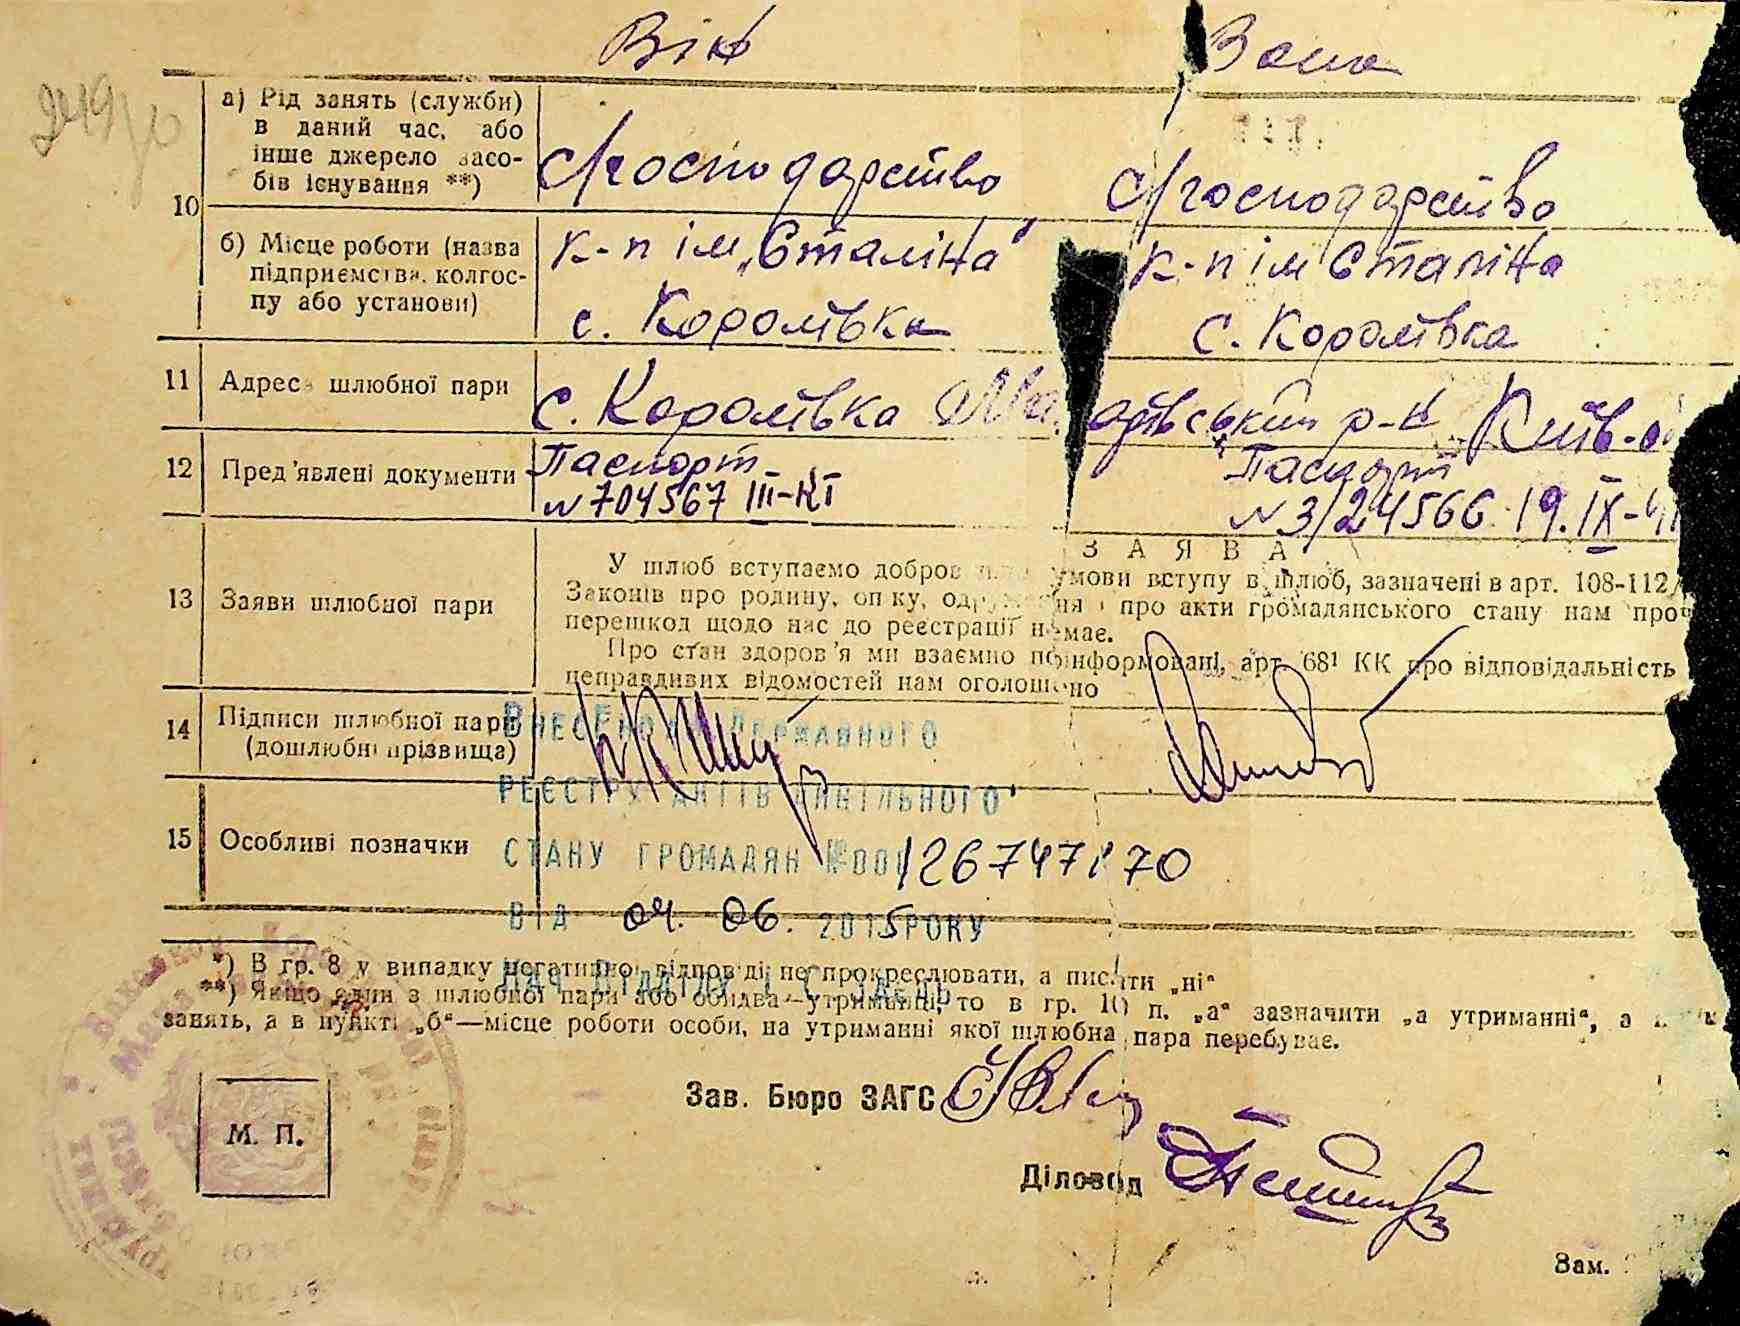 Він Вона
а) Рід занять (служби)
в даний час, або
інше джерело засо-
бів існування **)
С/господарство С/господарство
10
б) Місце роботи (назва
підприємства, колгос-
пу або установи)
к-п ім „Сталіна" к-п ім Сталіна
с. Королівка с. Королівка
11 Адреса шлюбної пари
с. Королівка р-н Київ-
12 Пред'явлені документи
Паспорт Паспорт
N 704567 III-КІ N 3/24566 19.IX-41
З А Я В А
13 Заяви шлюбної пари
У шлюб вступаємо умови вступу в шлюб, зазначені в арт. 108-112
Законів про родину, опіку, і про акти громадянського стану нам
перешкод щодо нас до реєстрації немає.
Про стан здоров'я ми взаємно поінформовані, арт. 68¹ КК про відповідальність
неправдивих відомостей нам оголошено
14 Підписи шлюбної пари
(дошлюбні прізвища)
Внесено до Державного
реєстру актів цивільного
15 Особливі позначки
стану громадян №00126747170
від 04. 06. 2015 року
*) В гр. 8 у випадку негативної відповіді не прокреслювати, а писати „ні"
Нач Відділу
**) Якщо один з шлюбної пари або обидва—утриманці, то в гр. 10 п. „а" зазначити „а утриманні", а
занять, а в пункті „б"—місце роботи особи, на утриманні якої шлюбна пара перебуває.
Зав. Бюро ЗАГС
М. П.
Діловод
Зам.